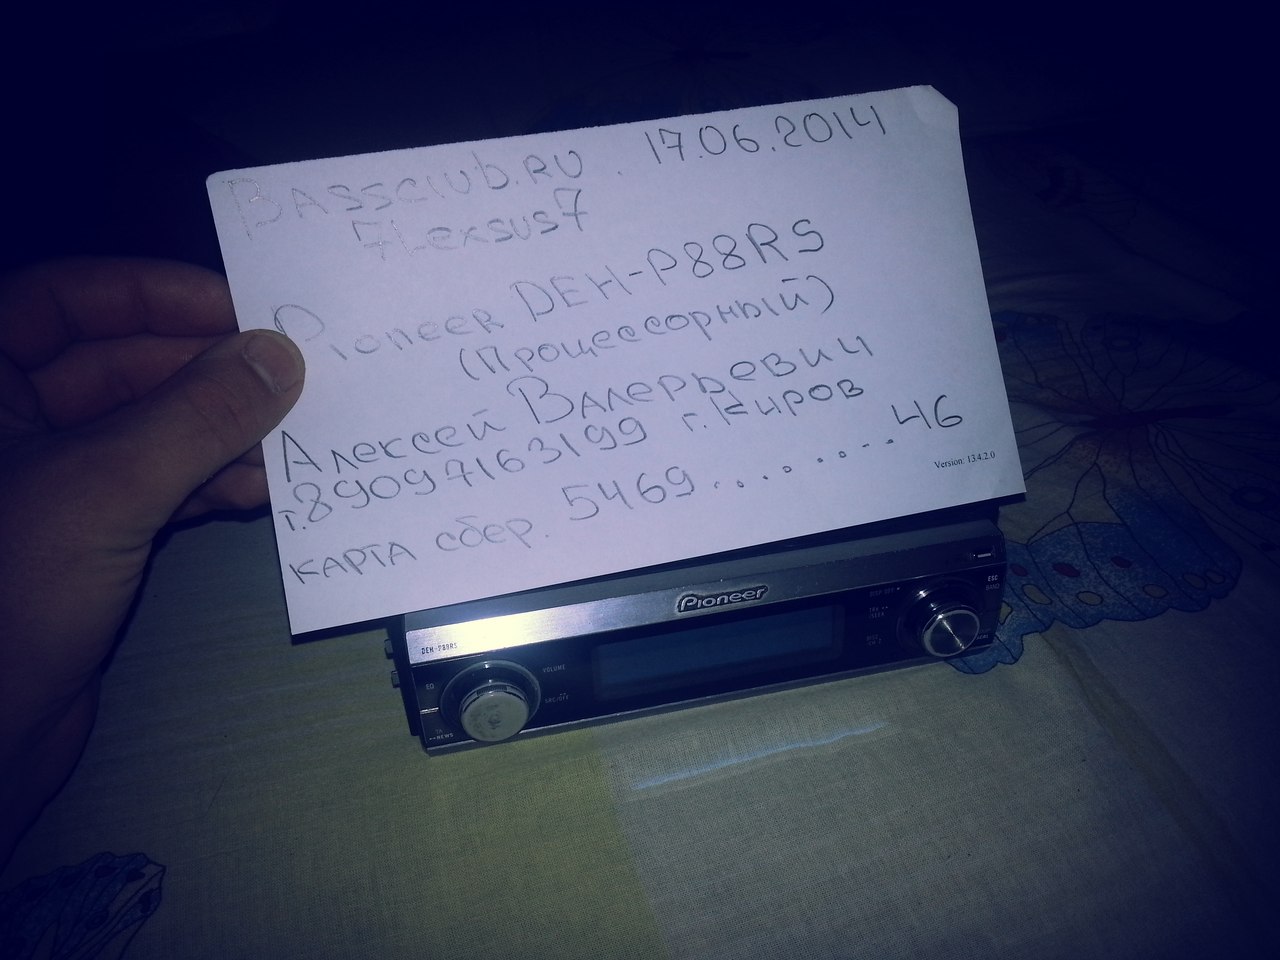 Bassclub.ru. 17.06.2014
7Lexsus7
Pioneer DEH-P88RS
(Процессорный)
Алексей Валерьевич
т.89097163199 г.Киров
карта сбер. 5469..........46
Version: 13.4.2.0
Pioneer
DEH-P88RS
VOLUME
EQ
SRC/OFF
TA
NEWS
ESC
BAND